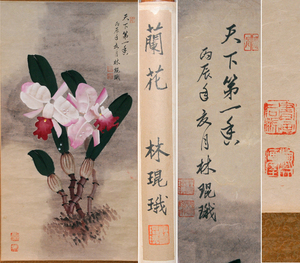 天下第一香
丙辰年亥月林琨璣
蘭花
林琨璣
天下第一香
丙辰年亥月林琨璣